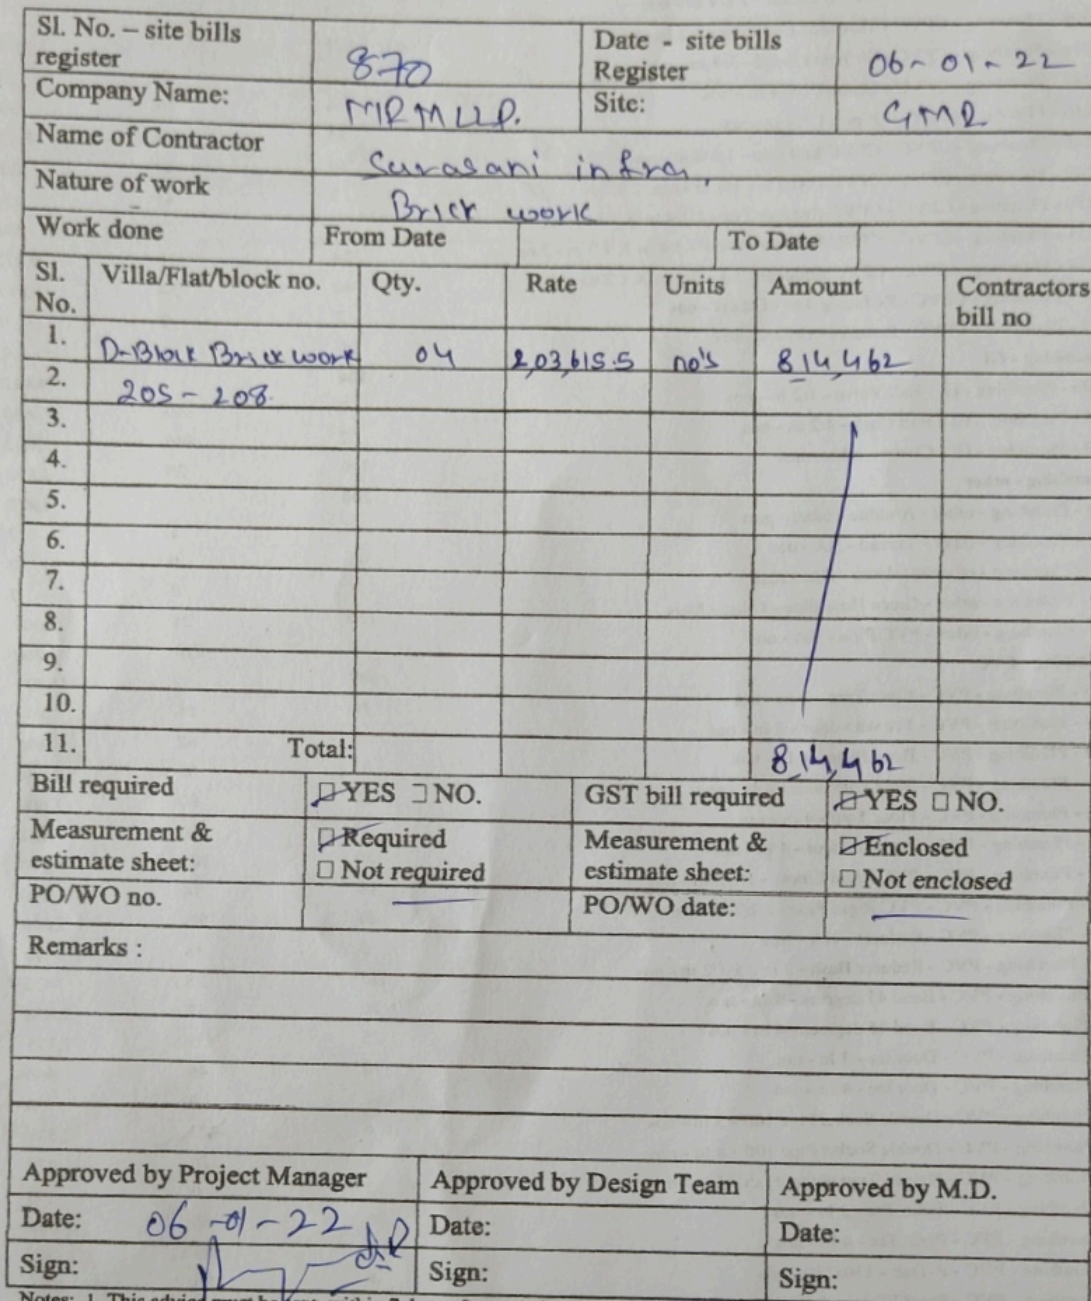 Sl. No. – site bills register 870 Date - site bills Register 06-01-22
Company Name: MRMLLP. Site: GMR
Name of Contractor Surasani infra,
Nature of work Brick work
Work done From Date To Date
Sl. No. Villa/Flat/block no. Qty. Rate Units Amount Contractors bill no
1. D-Block Brick work 04 2,03,615.5 no's 8,14,462
2. 205 - 208
3.
4.
5.
6.
7.
8.
9.
10.
11. Total: 8,14,462
Bill required YES NO. GST bill required YES NO.
Measurement & estimate sheet: Required Not required Measurement & estimate sheet: Enclosed Not enclosed
PO/WO no. PO/WO date:
Remarks :
Approved by Project Manager Approved by Design Team Approved by M.D.
Date: 06-01-22 Date: Date:
Sign: Sign: Sign: